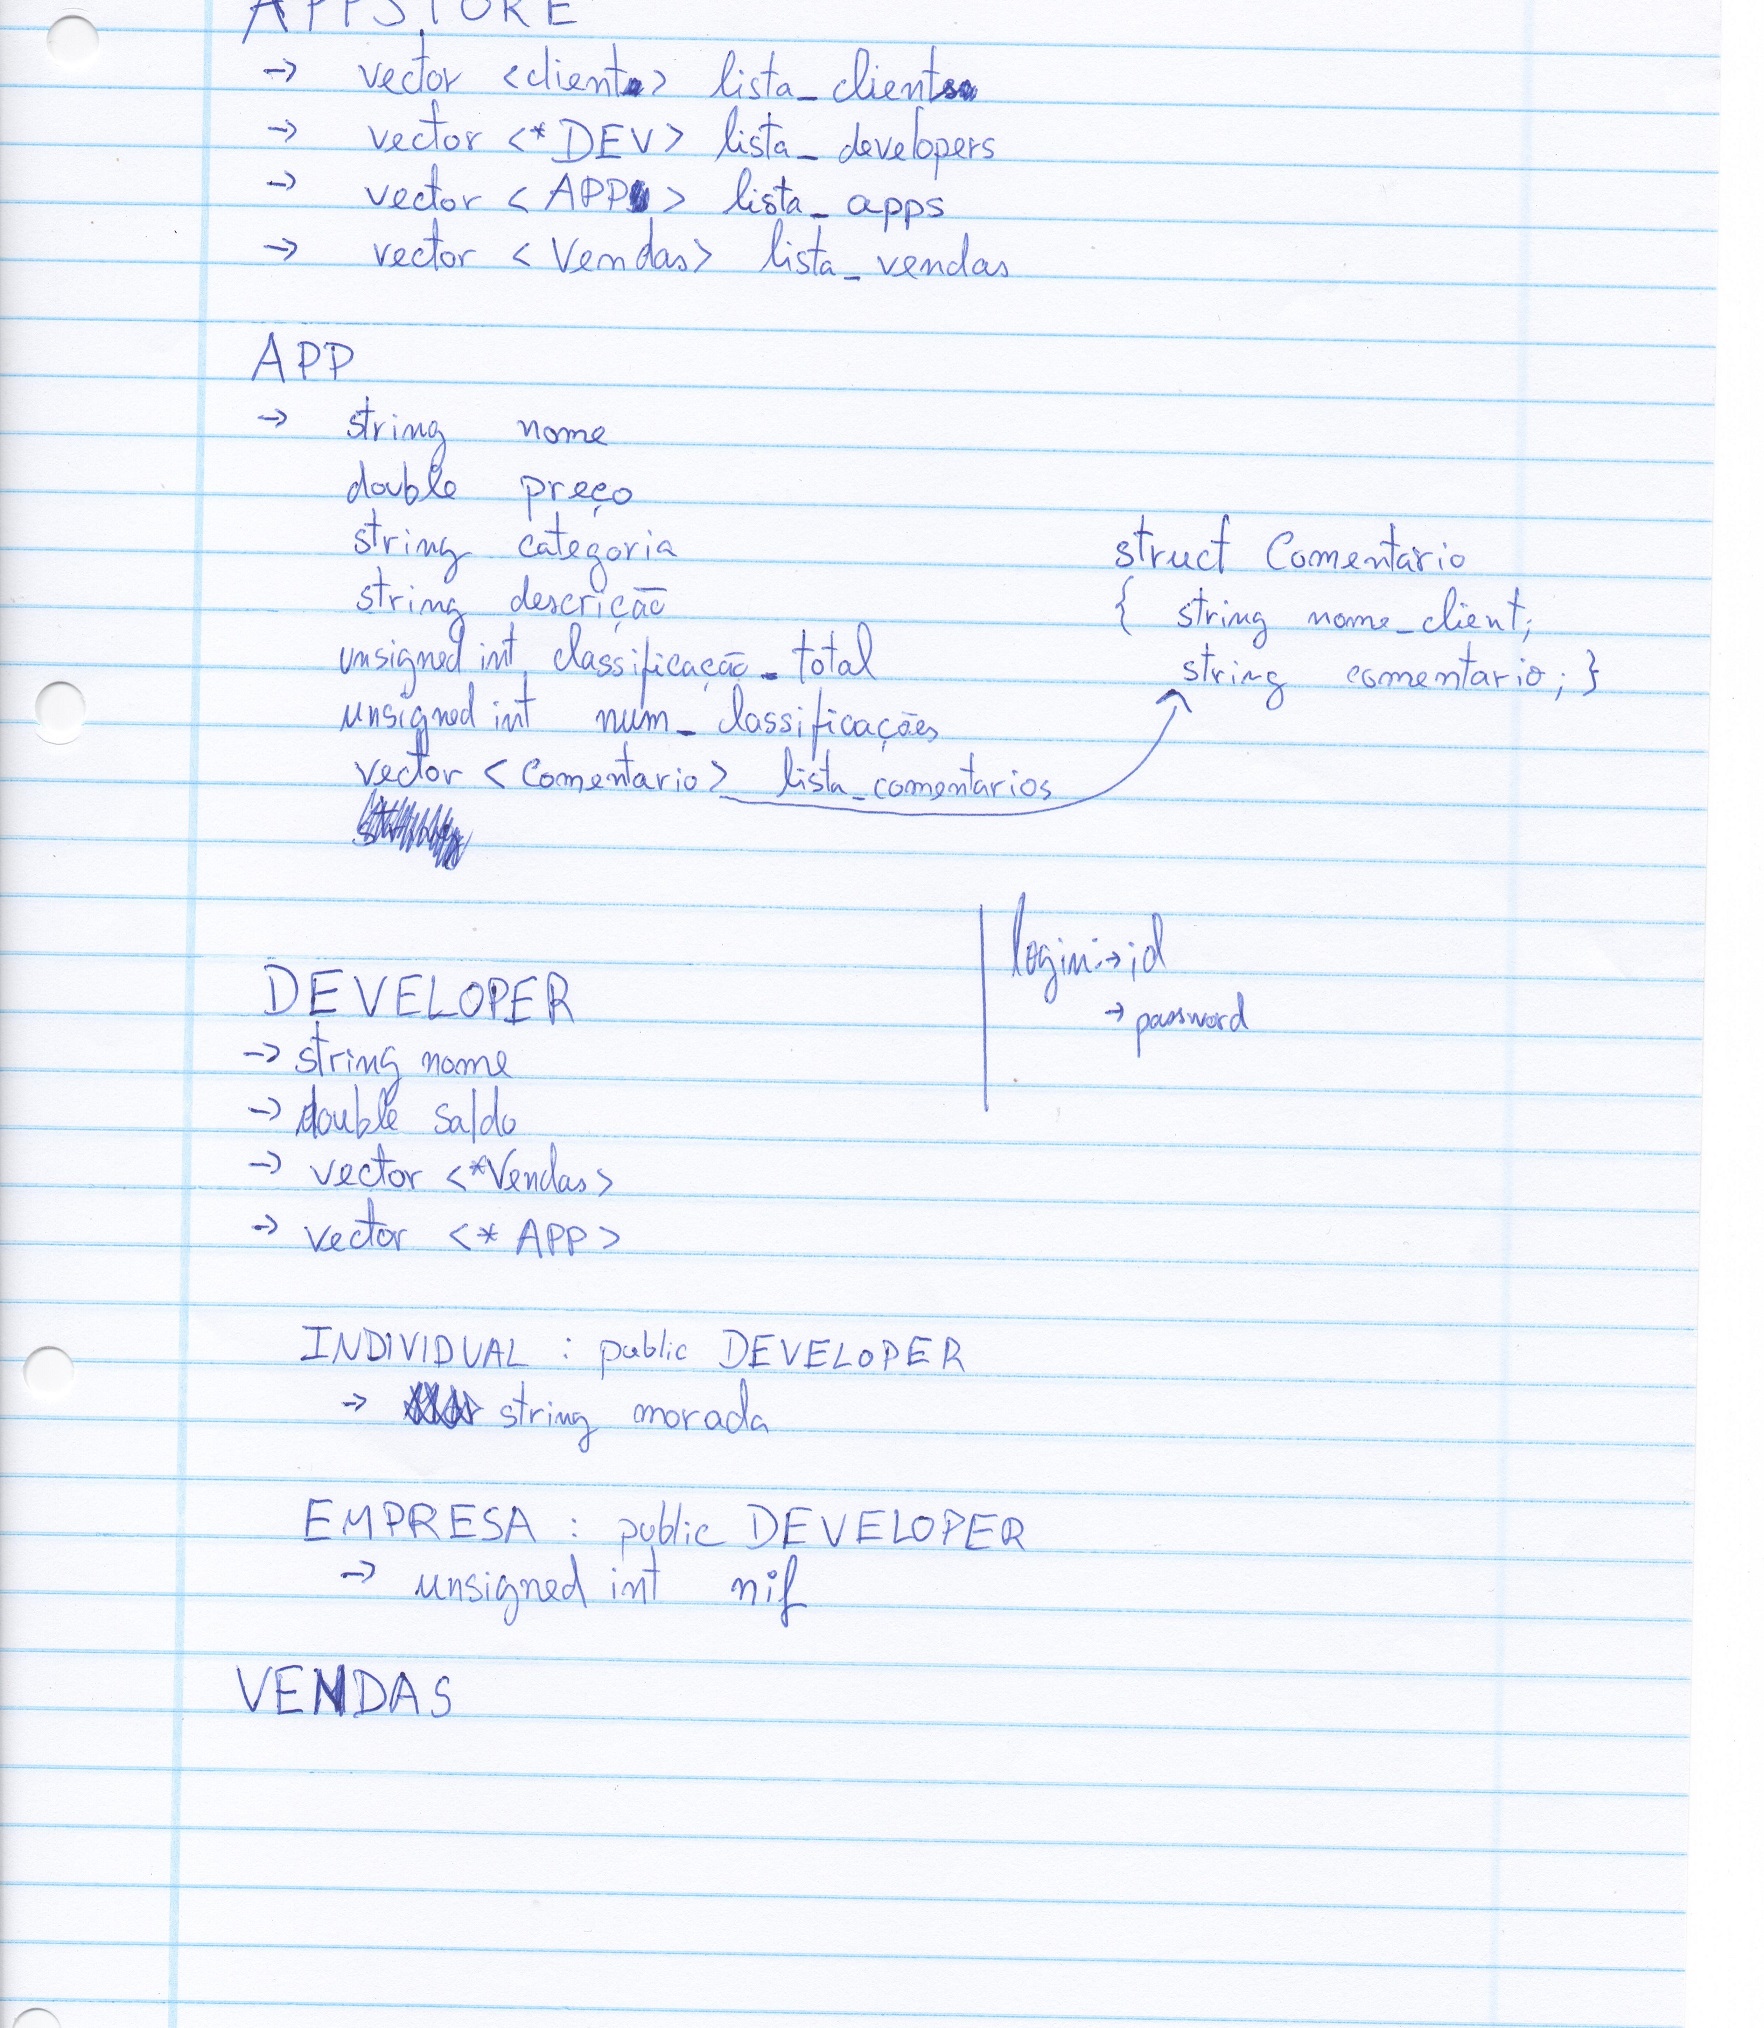 APPSTORE
→ vector <client> lista_clients
→ vector <*DEV> lista_developers
→ vector <APP> lista_apps
→ vector <Vendas> lista_vendas
APP
→ string nome
double preço
string categoria
string descrição
unsigned int classificação_total
unsigned int num_classificações
vector <Comentario> lista_comentarios
struct Comentario
{ string nome_client;
string comentario; }
login:→id
→ password
DEVELOPER
→ string nome
→ double saldo
→ vector <*Vendas>
→ vector <* APP>
INDIVIDUAL : public DEVELOPER
→ string morada
EMPRESA : public DEVELOPER
→ unsigned int nif
VENDAS